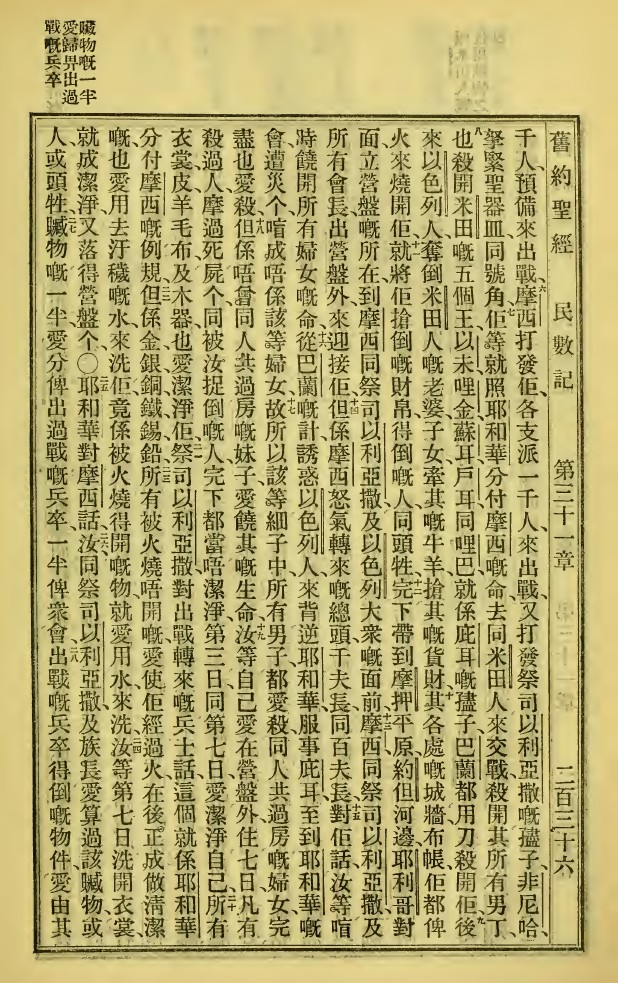 臟物嘅一半
愛歸畀出過
戰嘅兵卒
舊約聖經 民數記 第三十一章 二百三十六
千人、預備來出戰、六摩西打發佢、各支派一千人、來出戰、又打發祭司以利亞撒嘅𡥧子非尼哈、
拏緊聖器皿、同號角、七佢等就照耶和華分付摩西嘅命、去同米田人來交戰、殺開其所有男丁、
八也殺開米田嘅五個王、以未、哩金、蘇耳、戶耳、同哩巴、就係庇耳嘅𡥧子巴蘭、都用刀殺開佢、九後
來以色列人奪倒米田人嘅老婆子女、牽其嘅牛羊、搶其嘅貨財、十其各處嘅城牆布帳、佢都俾
火來燒開佢、十一就將佢搶倒嘅財帛、得倒嘅人、同頭牲、十二完下帶到摩押平原、約但河邊、耶利哥對
面、立營盤嘅所在、到摩西同祭司以利亞撒、及以色列大衆嘅面前、十三摩西同祭司以利亞撒、及
所有會長、出營盤外來迎接佢、十四但係摩西怒氣轉來嘅總頭、千夫長、同百夫長、十五對佢話、汝等喧
時饒開所有婦女嘅命、十六從巴蘭嘅計、誘惑以色列人、來背逆耶和華、服事庇耳、至到耶和華嘅
會遭災个、喧成唔係該等婦女、十七故所以該等細子中所有男子、都愛殺、同人共過房嘅婦女、完
盡也愛殺、十八但係唔曾同人共過房嘅妹子、愛饒其嘅生命、十九汝等自己愛在營盤外、住七日、凡有
殺過人、摩過死屍个、同被汝捉倒嘅人、完下都當唔潔淨、第三日同第七日、愛潔淨自己、二十所有
衣裳、皮、羊毛布、及木器、也愛潔淨佢、二一祭司以利亞撒對出戰轉來嘅兵士話、這個就係耶和華
分付摩西嘅例規、二二但係金、銀、銅、鐵、錫、鉛、二三所有被火燒唔開嘅、愛使佢經過火、在後正成做淸潔
嘅、也愛用去汙穢嘅水來洗佢、竟係被火燒得開嘅物、就愛用水來洗、二四汝等第七日洗開衣裳、
就成潔淨、又落得營盤个、〇二五耶和華對摩西話、二六汝同祭司以利亞撒、及族長、愛算過該臟物、或
人或頭牲、二七臟物嘅一半、愛分俾出過戰嘅兵卒、一半俾衆會、二八出戰嘅兵卒、得倒嘅物件、愛由其